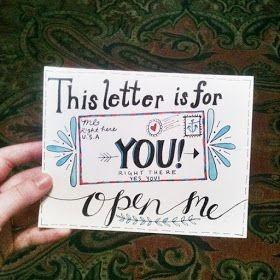 This letter is for
Me
Right here
U.S.A
YOU!
RIGHT THERE
YES, YOU!
open me